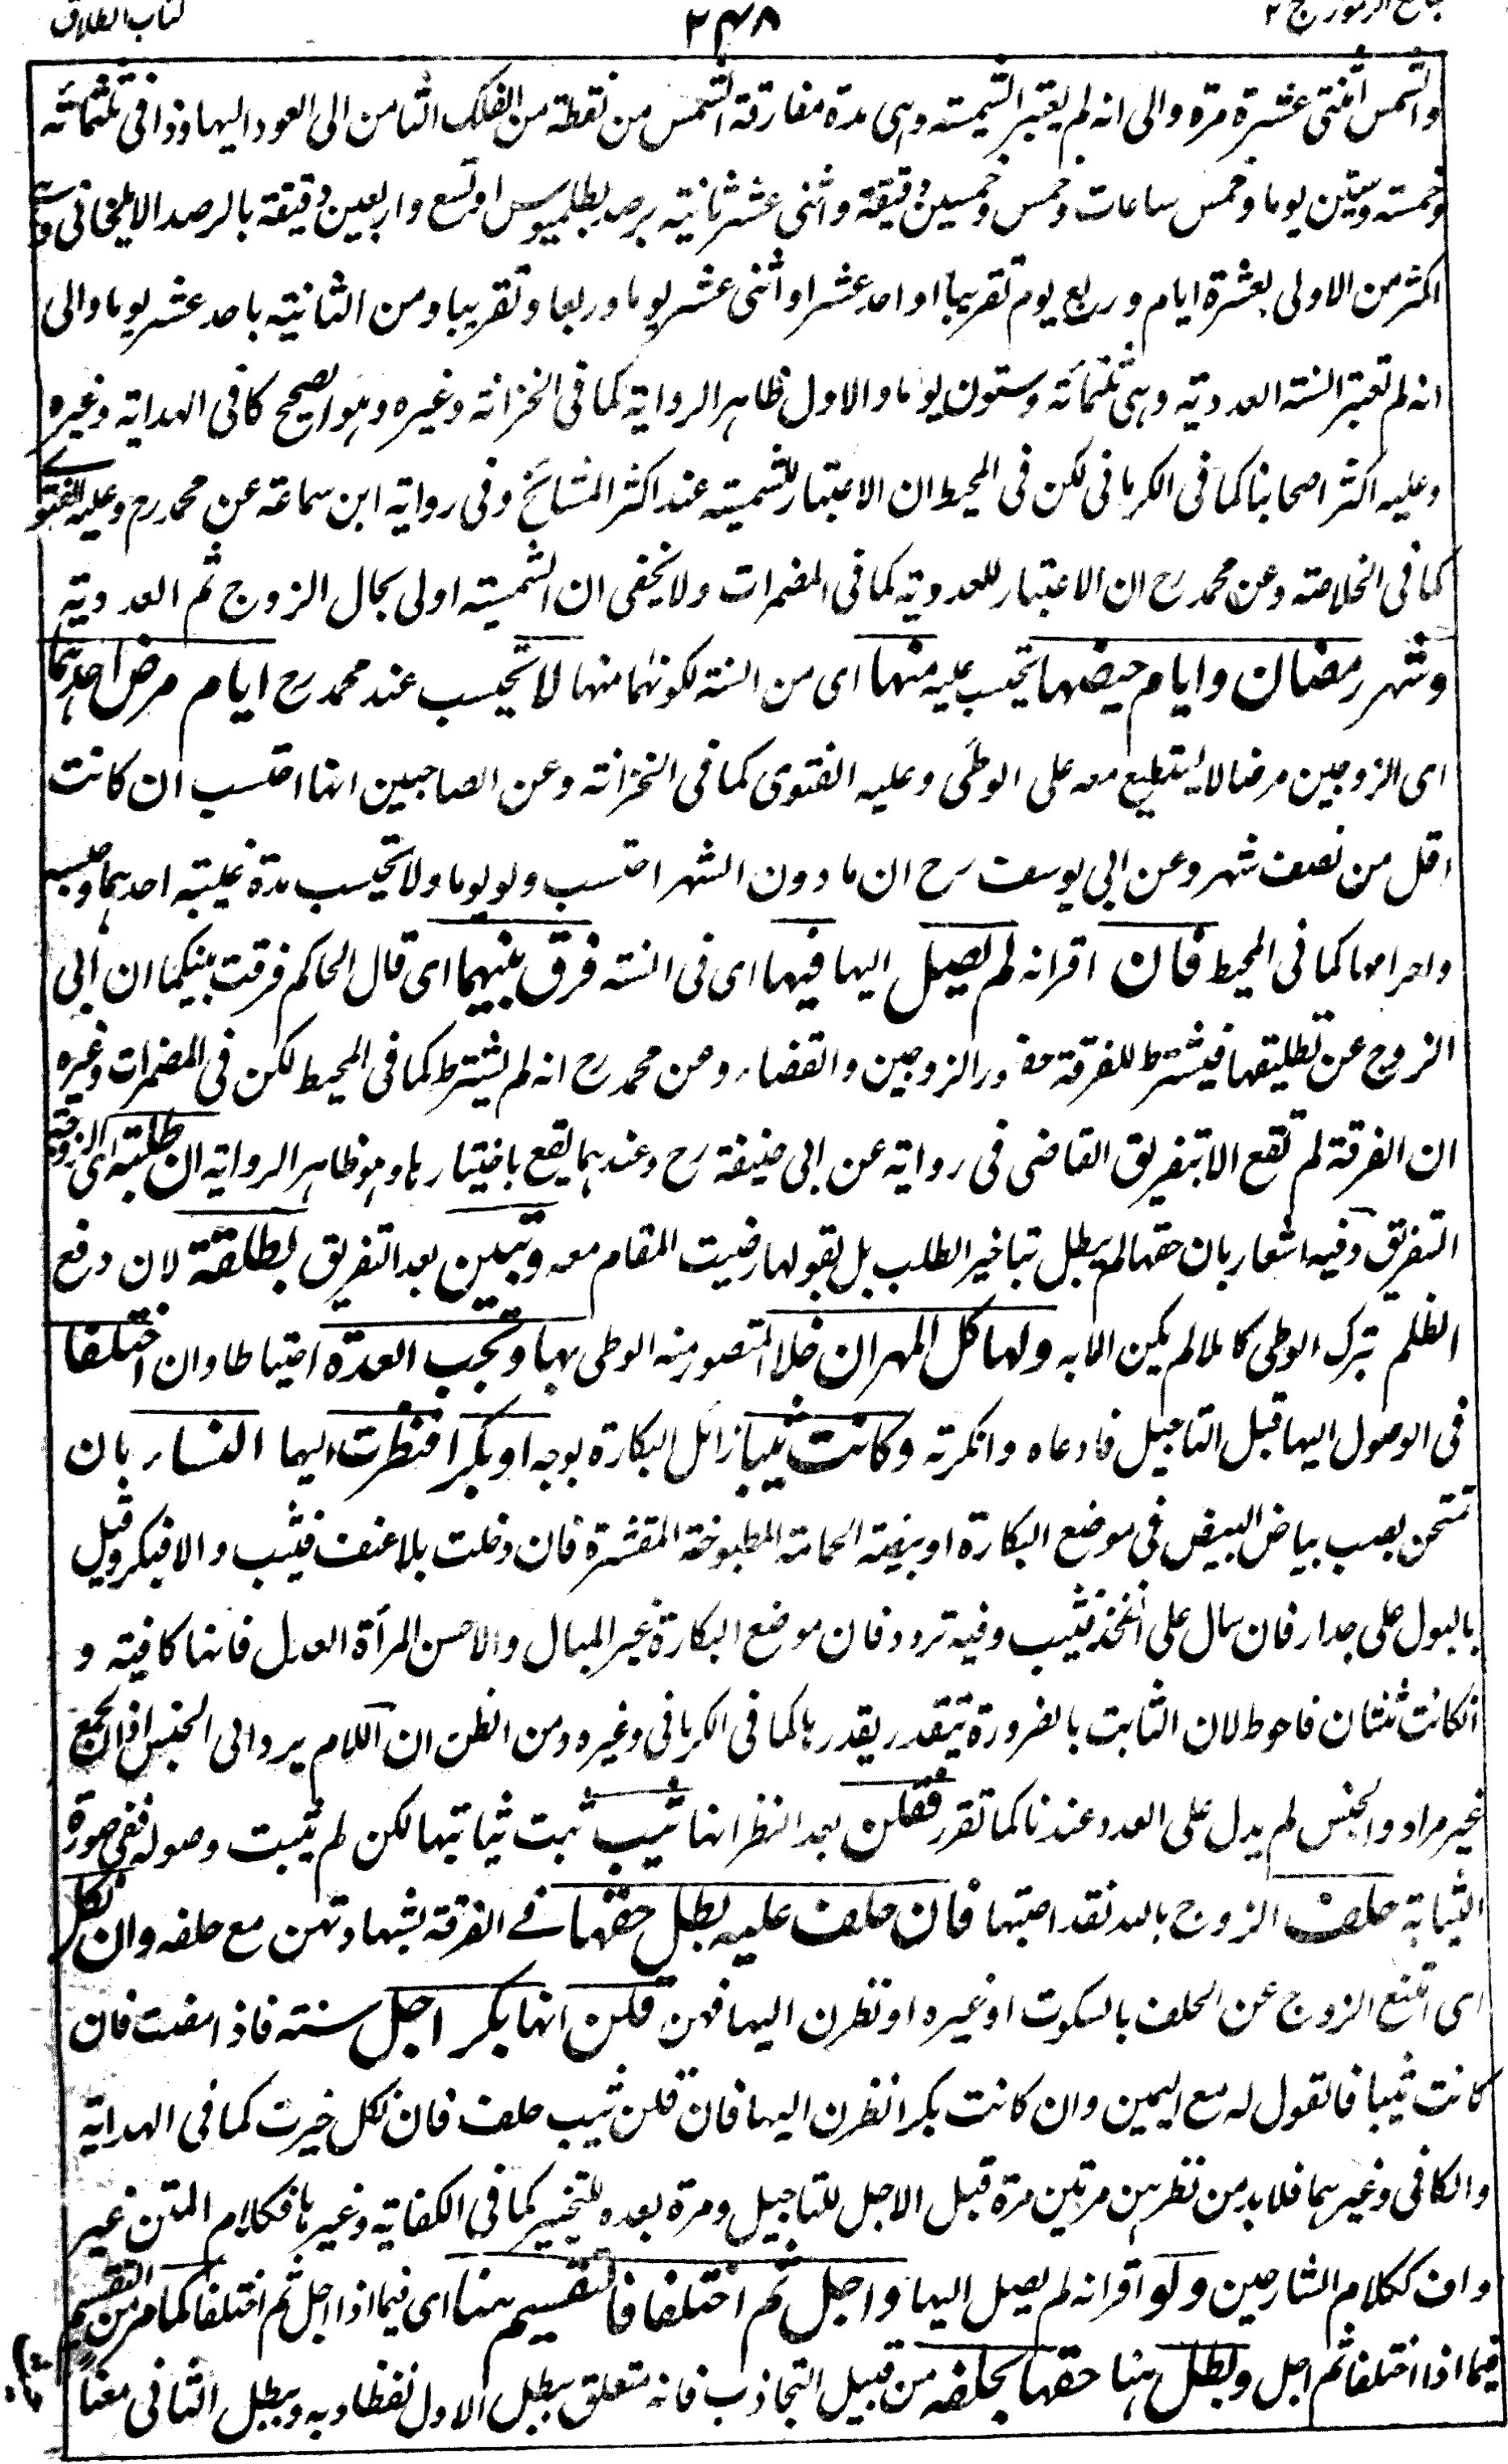 جامع الرموز ج ٢ ٢٤٨ كتاب الطلاق
والشمس اثنتى عشرة مرة والى انه لم يعتبر الشمسية وهى مدة مفارقة الشمس من نقطة من الفلك الثامن الى العود اليها وذا فى ثلثمائة
وخمسة وستين يوما وخمس ساعات وخمس وخمسين دقيقة واثنى عشر ثانية برصد بطلميوس او تسع واربعين دقيقة بالرصد الايلخانى
اكثر من الاولى بعشرة ايام وربع يوم تقريبا او احد عشر او اثنى عشر يوما وربعا وتقريبا ومن الثانية باحد عشر يوما والى
انه لم تعتبر السنة العددية وهى ثلثمائة وستون يوما والاول ظاهر الرواية كما فى الخزانة وغيره وهو الصحيح كما فى الهداية وغيره
وعليه اكثر اصحابنا كما فى الكرمانى لكن فى المحيط ان الاعتبار للشمسية عند اكثر المشائخ وفى رواية ابن سماعة عن محمد رح وعليه الفتوے
كما فى الخلاصة وعن محمد رح ان الاعتبار للعددية كما فى المضمرات ولا يخفى ان الشمسية اولى بحال الزوج ثم العددية
وشهر رمضان وايام حيضها يحتسب عليه منها اى من السنة لكونهما منها لا تحتسب عند محمد رح ايام مرض احدهما
اى الزوجين مرضا لا يستطيع معه على الوطى وعليه الفتوى كما فى الخزانة وعن الصاحبين انها احتسب ان كانت
اقل من نصف شهر وعن ابى يوسف رح ان ما دون الشهر احتسب ولو يوما ولا تحتسب مدة غيبته احدهما وحبسه
واحرامها كما فى المحيط فان اقر انه لم يصل اليها فيها اى فى السنة فرق بينهما اى قال الحاكم فرقت بينكما ان ابى
الزوج عن تطليقها فيشترط للفرقة حضور الزوجين والقضاء وعن محمد رح انه لم يشترط كما فى المحيط لكن فى المضمرات وغيره
ان الفرقة لم تقع الا بتفريق القاضى فى رواية عن ابى حنيفة رح وعندهما يقع باختيارها وهو ظاهر الرواية ان طلبته اى الزوجة
التفريق وفيه اشعار بان حقها لم يبطل بتاخير الطلب بل بقولها رضيت المقام معه وتبين بعد التفريق بطلقة لان دفع
الظلم بترك الوطى كاملا لم يكن الا به ولها كل المهر ان خلا المتصور منه الوطى بها وتجب العدة احتياطا وان اختلفا
فى الوصول اليها قبل التاجيل فادعاه وانكرته وكانت ثيبا زائل البكارة بوجه او بكرا فنظرت اليها النساء بان
تمتحن بصب بياض البيض فى موضع البكارة او بيضة الحمامة المطبوخة المقشرة فان دخلت بلا عنف فثيب والا فبكر وقيل
بالبول على جدار فان سال على الفخذ فثيب وفيه تردد فان موضع البكارة غير المبال والاحسن المرأة العدل فانها كافية و
انكانت ثنتان فاحوط لان الثابت بالضرورة يتقدر بقدرها كما فى الكرمانى وغيره ومن الظن ان اللام يرد الى الجنس اذ الجمع
غير مراد والجنس لم يدل على العدد عندنا كما تقرر فقلن بعد النظر انها ثيب ثبت ثيابتها لكن لم يثبت وصوله ففى صورة
الثيابة حلف الزوج بالله لقد اصبتها فان حلف عليه بطل حقها فے الفرقة بشهادتهن مع حلفه وان نكل
اى امتنع الزوج عن الحلف بالسكوت او غيره او نظرن اليها فهن قلن انها بكر اجل سنة فاذا مضت فان
كانت ثيبا فالقول له مع اليمين وان كانت بكرا نظرن اليها فان قلن ثيب حلف فان نكل خيرت كما فى الهداية
والكافى وغيرهما فلا بد من نظرهن مرتين مرة قبل الاجل للتاجيل ومرة بعده للتخيير كما فى الكفاية وغيرها فكلام المتن غير
واف ككلام الشارحين ولو اقر انه لم يصل اليها واجل ثم اختلفا فالتقسيم هنا اى فيما اذا اجل ثم اختلفا كما مر من التقسيم
فيما اذا اختلفا ثم اجل وبطل هنا حقها بحلفه من قبيل التجاذب فانه متعلق ببطل الاول لفظا وبه وببطل الثانى معنا